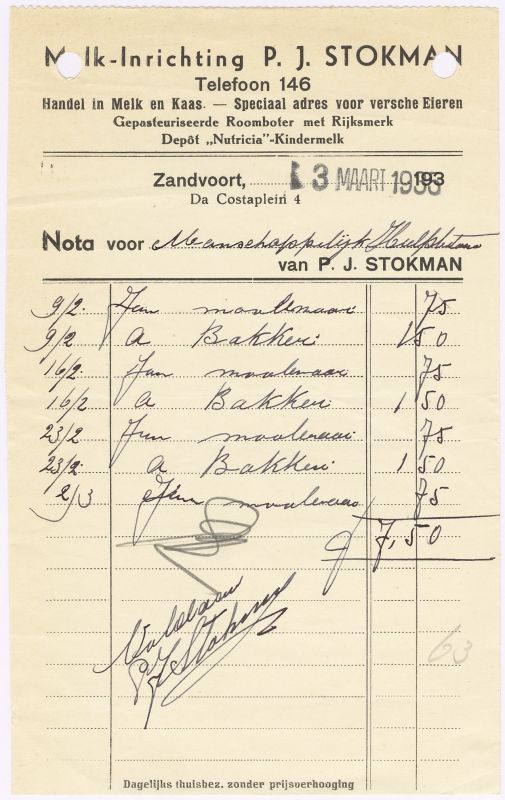 Melk-Inrichting P. J. STOKMAN
Telefoon 146
Handel in Melk en Kaas. — Speciaal adres voor versche Eieren
Gepasteuriseerde Roomboter met Rijksmerk
Depôt „Nutricia"-Kindermelk
Zandvoort, 3 MAART 1933 193
Da Costaplein 4
Nota voor Maanschappelijk Hulpbetoon
van P. J. STOKMAN
9/2. Jan moolenaar 75
9/2 A Bakker 1 50
16/2 Jan moolenaar 75
16/2 A Bakker 1 50
23/2 Jan moolenaar 75
23/2 A Bakker 1 50
2/3 Jan moolenaar 75
f 7,50
Voldaan
P J Stokman
63
Dagelijks thuisbez. zonder prijsverhooging